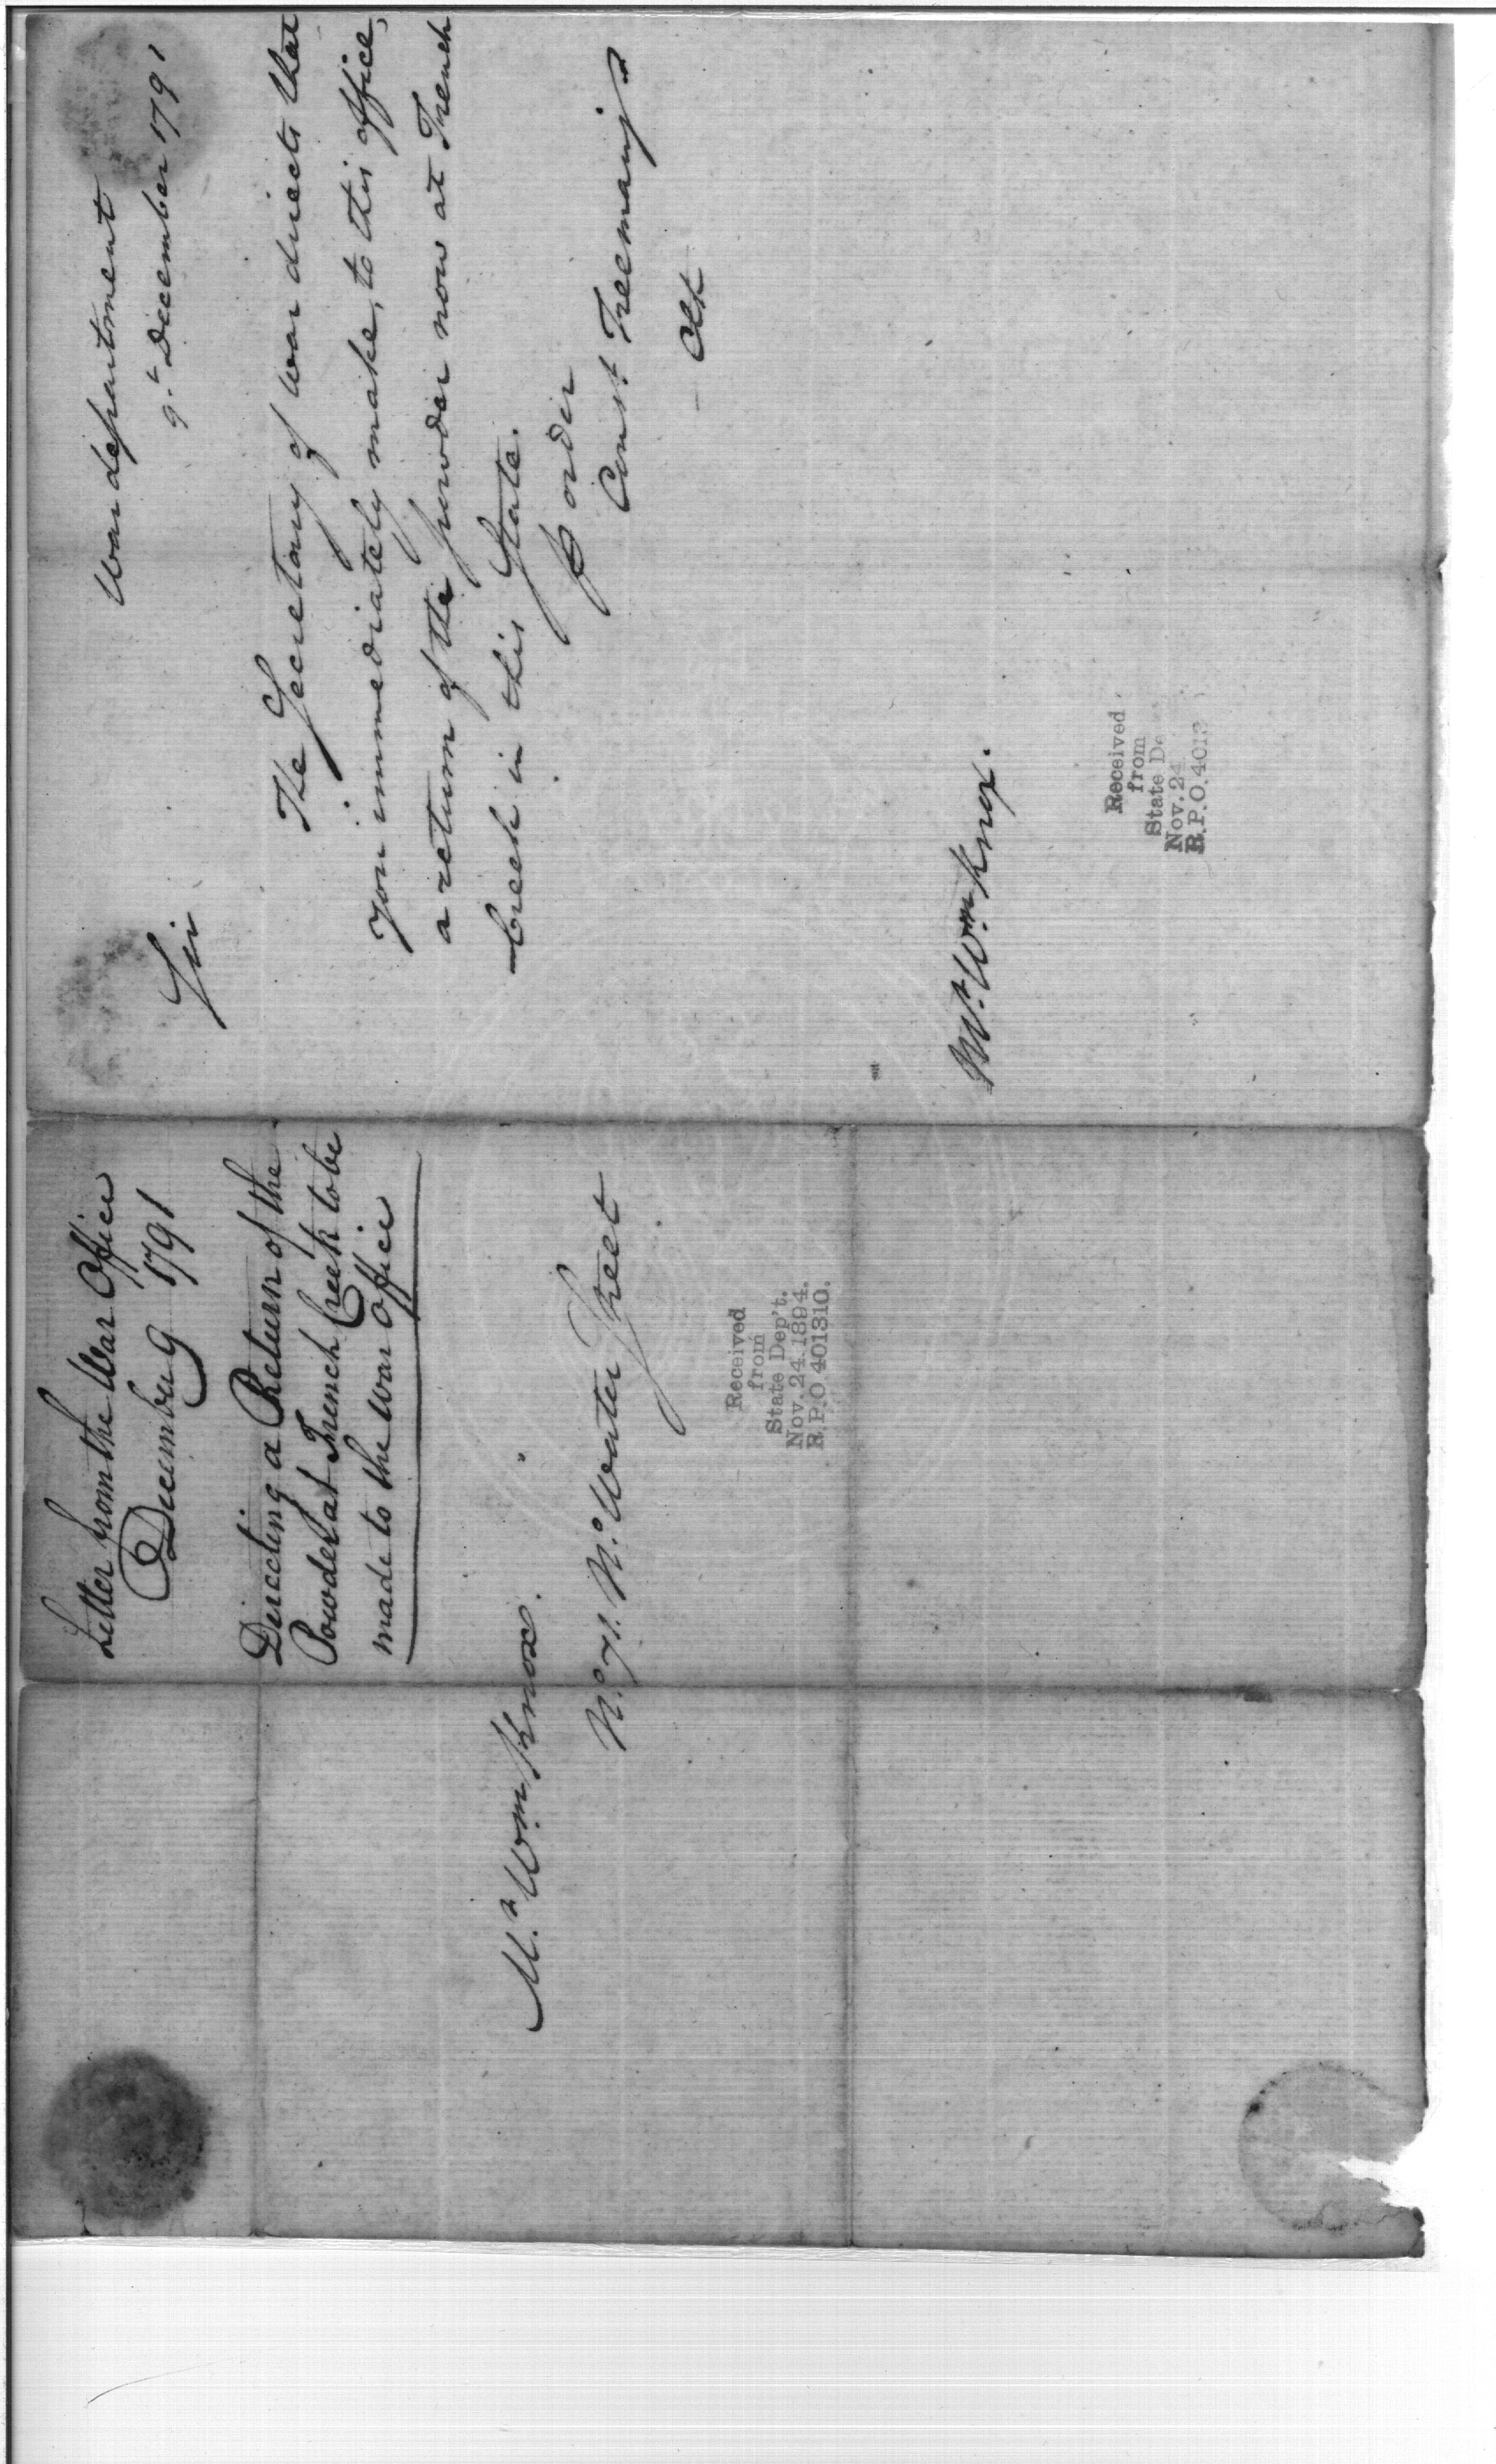 War department
9.th December 1791
Sir
The Secretary of War directs that
you immediately make, to this office,
a return of the powder now at French
Creek in this State.
⅌ order
Const Freeman
Clk
Mr. Wm Knox.
Received
from
State De
Nov. 24
R.P.O. 4013
Letter from the War Office
December 9 1791
Directing a Return of the
Powder at French Creek to be
made to the War Office
Mr. Wm Knox.
No. 71. No. Water Street
Received
from
State Dep't.
Nov. 24. 1894.
R.P.O. 401310.